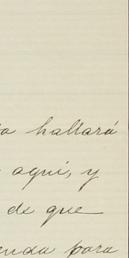 hallará
aquí, y
de que
para